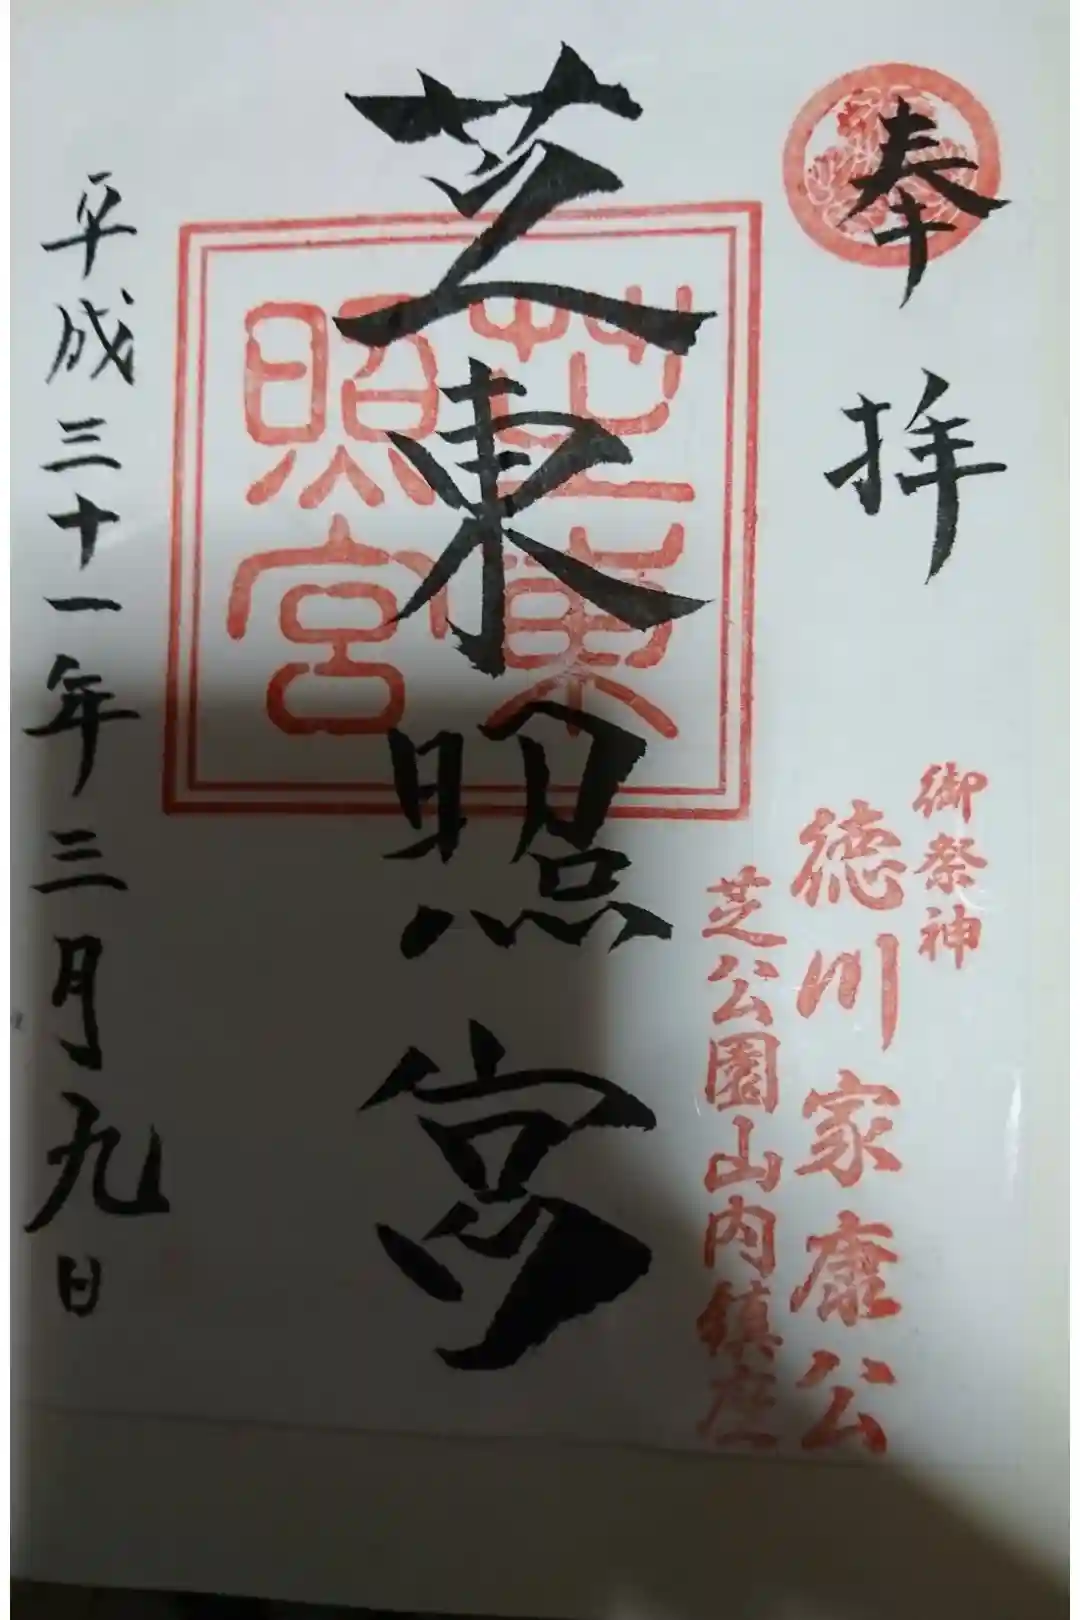 奉拝
御祭神
徳川家康公
芝公園山内鎮座
芝東照宮
芝東
照宮
平成三十一年三月九日